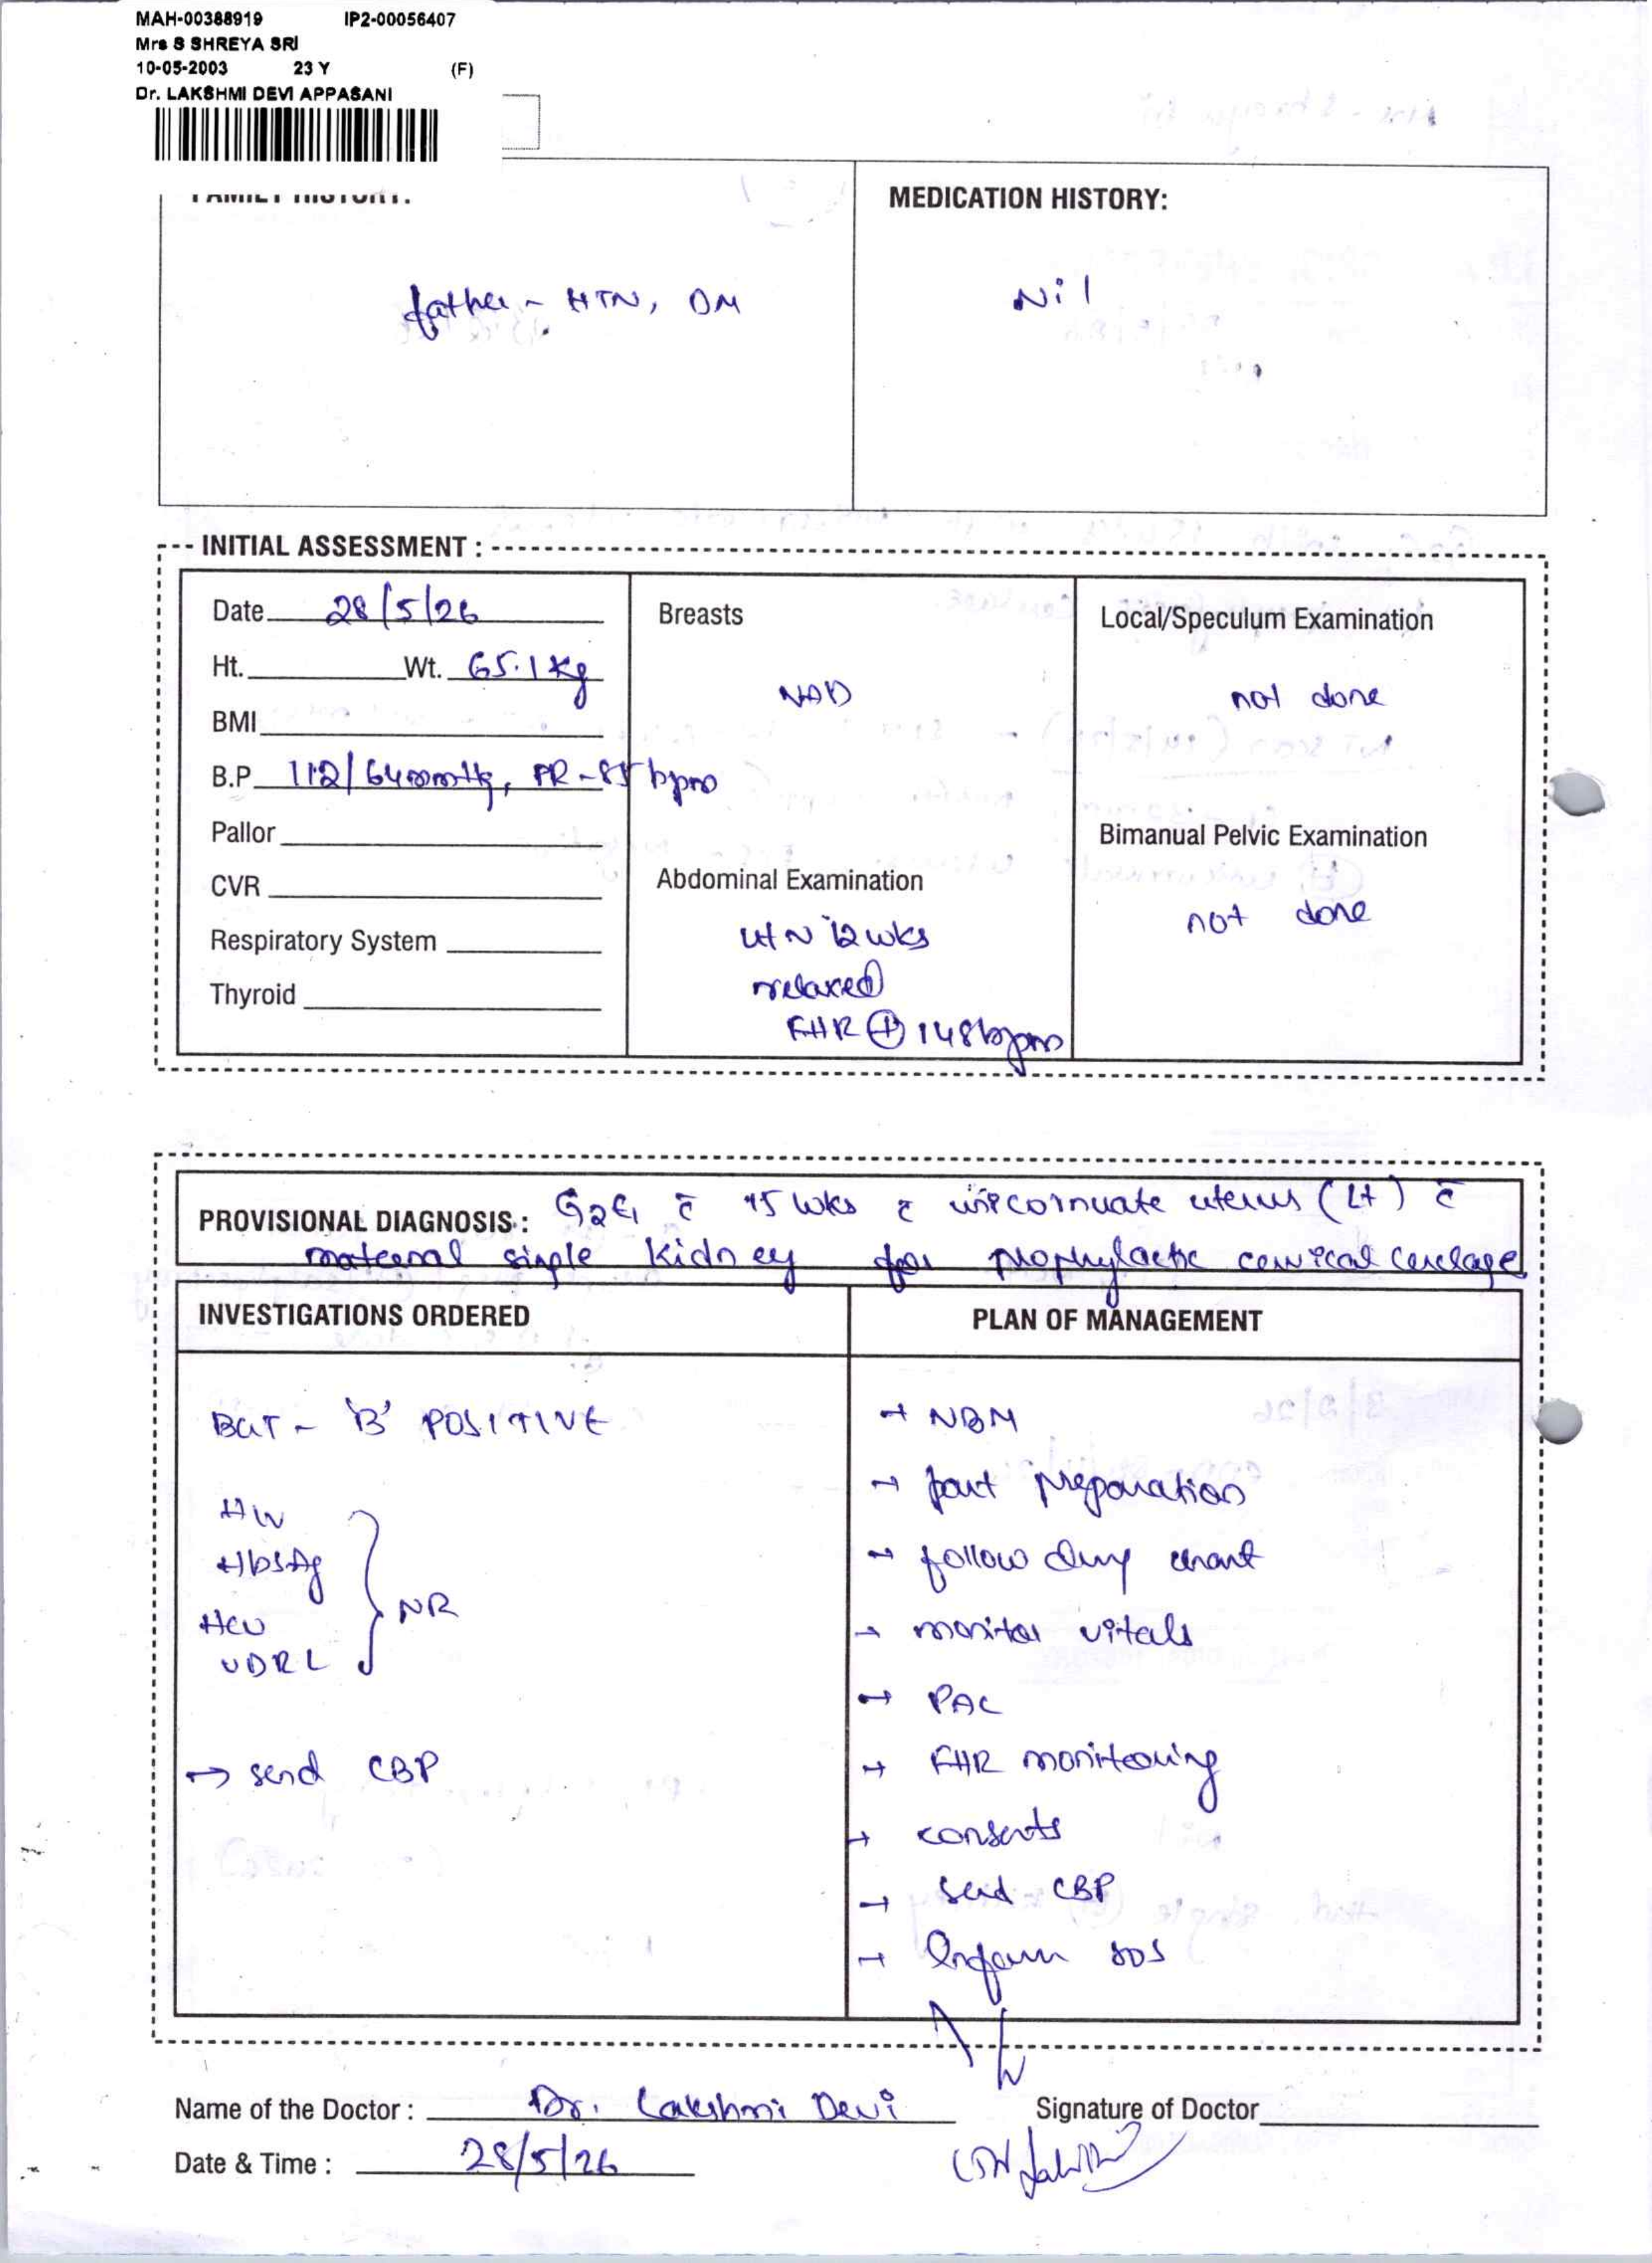 MAH-00388919 IP2-00056407
Mrs S SHREYA SRI
10-05-2003 23 Y (F)
Dr. LAKSHMI DEVI APPASANI
FAMILY HISTORY:
MEDICATION HISTORY:
father - HTN, DM
Nil
INITIAL ASSESSMENT :
Date 28/5/26
Ht. Wt. 65.1 kg
BMI
B.P 112/64mmHg, PR-85 bpm
Pallor
CVR
Respiratory System
Thyroid
Breasts
NAD
Abdominal Examination
Ut ~ 12 wks
relaxed
FHR ⊕ 148 bpm
Local/Speculum Examination
not done
Bimanual Pelvic Examination
not done
PROVISIONAL DIAGNOSIS : G2E1 c̄ 15 wks c̄ unicornuate uterus (Lt) c̄
maternal single kidney for prophylactic cervical cerclage
INVESTIGATIONS ORDERED
BGT - 'B' POSITIVE
HIV
HbsAg
HCV
VDRL
NR
→ send CBP
PLAN OF MANAGEMENT
→ NBM
→ part preparation
→ follow drug chart
→ monitor vitals
→ PAC
→ FHR monitoring
→ consents
→ send CBP
→ Inform SOS
Name of the Doctor : Dr. Lakshmi Devi
Signature of Doctor
Date & Time : 28/5/26